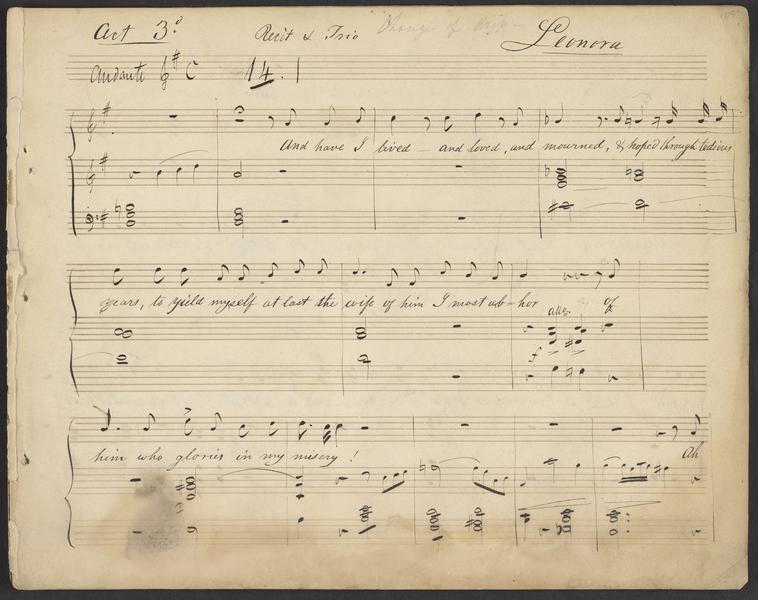 Act 3.d Recit & Trio Change of Key — Leonora
Andante C 14.
And have I lived — and loved, and mourned, & hoped through tedious
years, to yield myself at last the wife of him I most ab-hor of
alleg.
f
him who glories in my misery! Ah